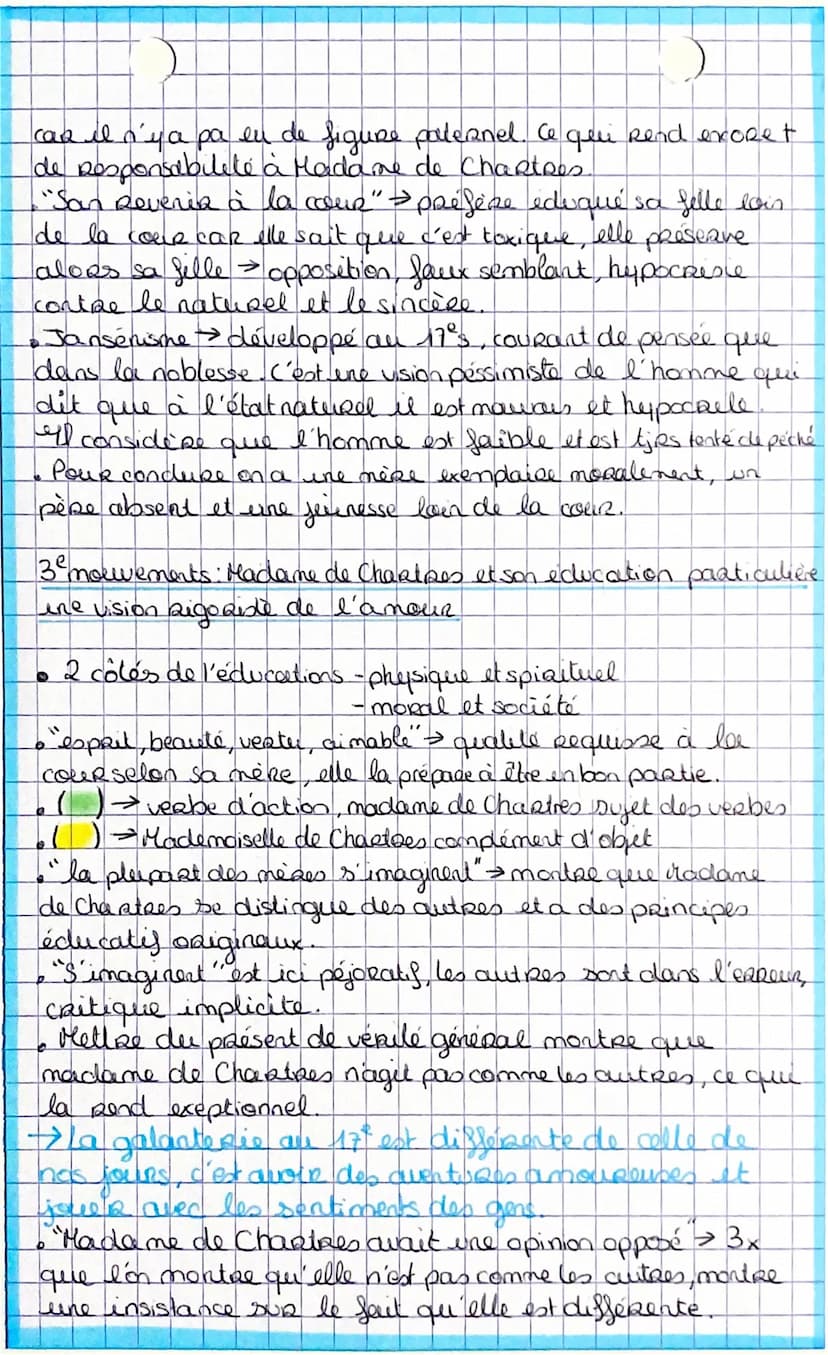 car il n'y a pa eu de figure paternel. Ce qui rend excort
de responsabilité à Madame de Chartres.
."San revenir à la cour" → préfère eduqué sa fille loin
de la cour car elle sait que c'est toxique, elle préserve
alors sa fille → opposition, faux semblant, hypocrisie
contre le naturel et le sincère.
• Jansénisme → développé au 17es, courant de pensée que
dans la noblesse. C'est une vision péssimiste de l'homme qui
dit que à l'état naturel il est mauvais et hypocrite.
Il considère que l'homme est faible et est tjrs tenté de péché
• Pour conclure on a une mère exemplaire moralement, un
père absent et une jeunesse loin de la cour.
3e mouvements : Madame de Chartres et son éducation particulière
une vision rigoriste de l'amour
• 2 côtés de l'éducations - physique et spirituel
- moral et société
• "esprit, beauté, vertu, aimable" → qualité requisse à la
cour selon sa mère, elle la prépade à être un bon partie.
• ( ) → verbe d'action, madame de Chartres sujet des verbes
• ( ) → Mademoiselle de Chartres complément d'objet
• "la plupart des mères s'imaginent" → montre que Madame
de Chartres se distingue des autres et a des principes
éducatifs originaux.
• "S'imaginent" est ici péjoratif, les autres sont dans l'erreur,
critique implicite.
• Mettre du présent de vérité général montre que
madame de Chartres n'agit pas comme les autres, ce qui
la rend exeptionnel.
→ La galanterie au 17e est différente de celle de
nos jours, c'est avoir des aventures amoureuses et
jouer avec les sentiments des gens.
• "Madame de Chartres avait une opinion opposé" → 3x
que l'on montre qu'elle n'est pas comme les autres, montre
une insistance sur le fait qu'elle est différente.